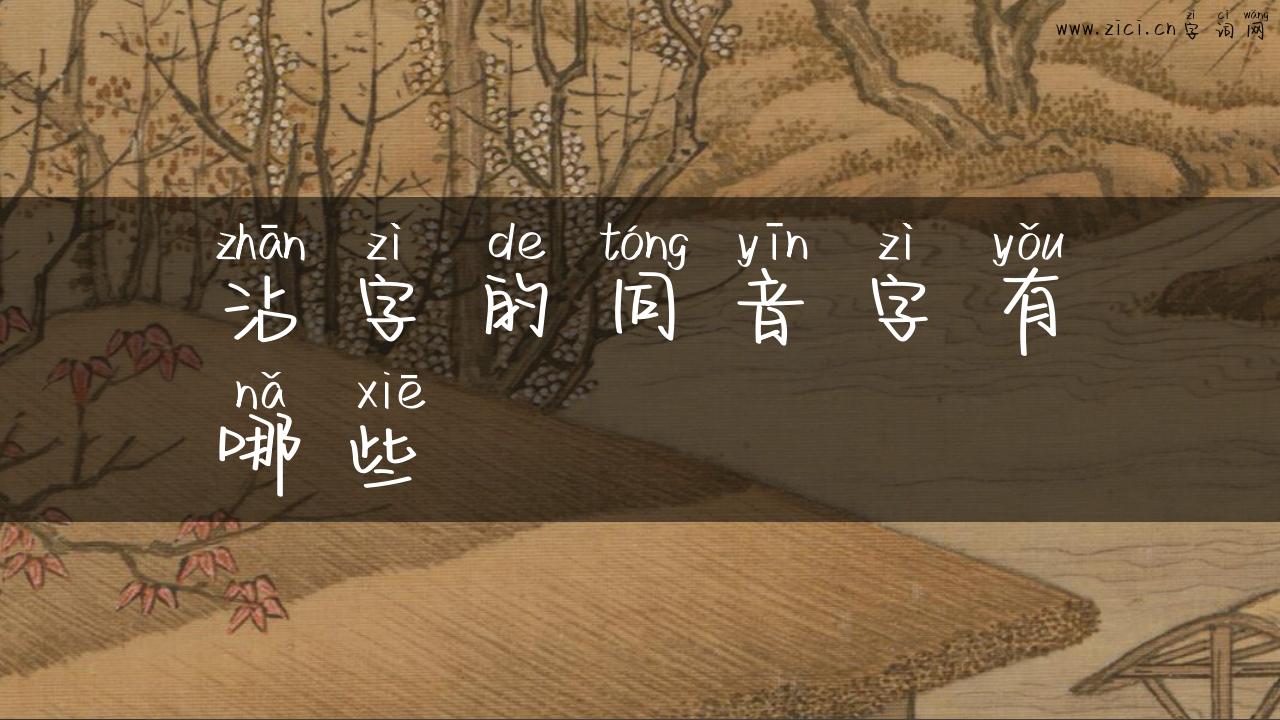 zì cí wǎng
www.zici.cn字词网
zhān zì de tóng yīn zì yǒu
沾字的同音字有
nǎ xiē
哪些